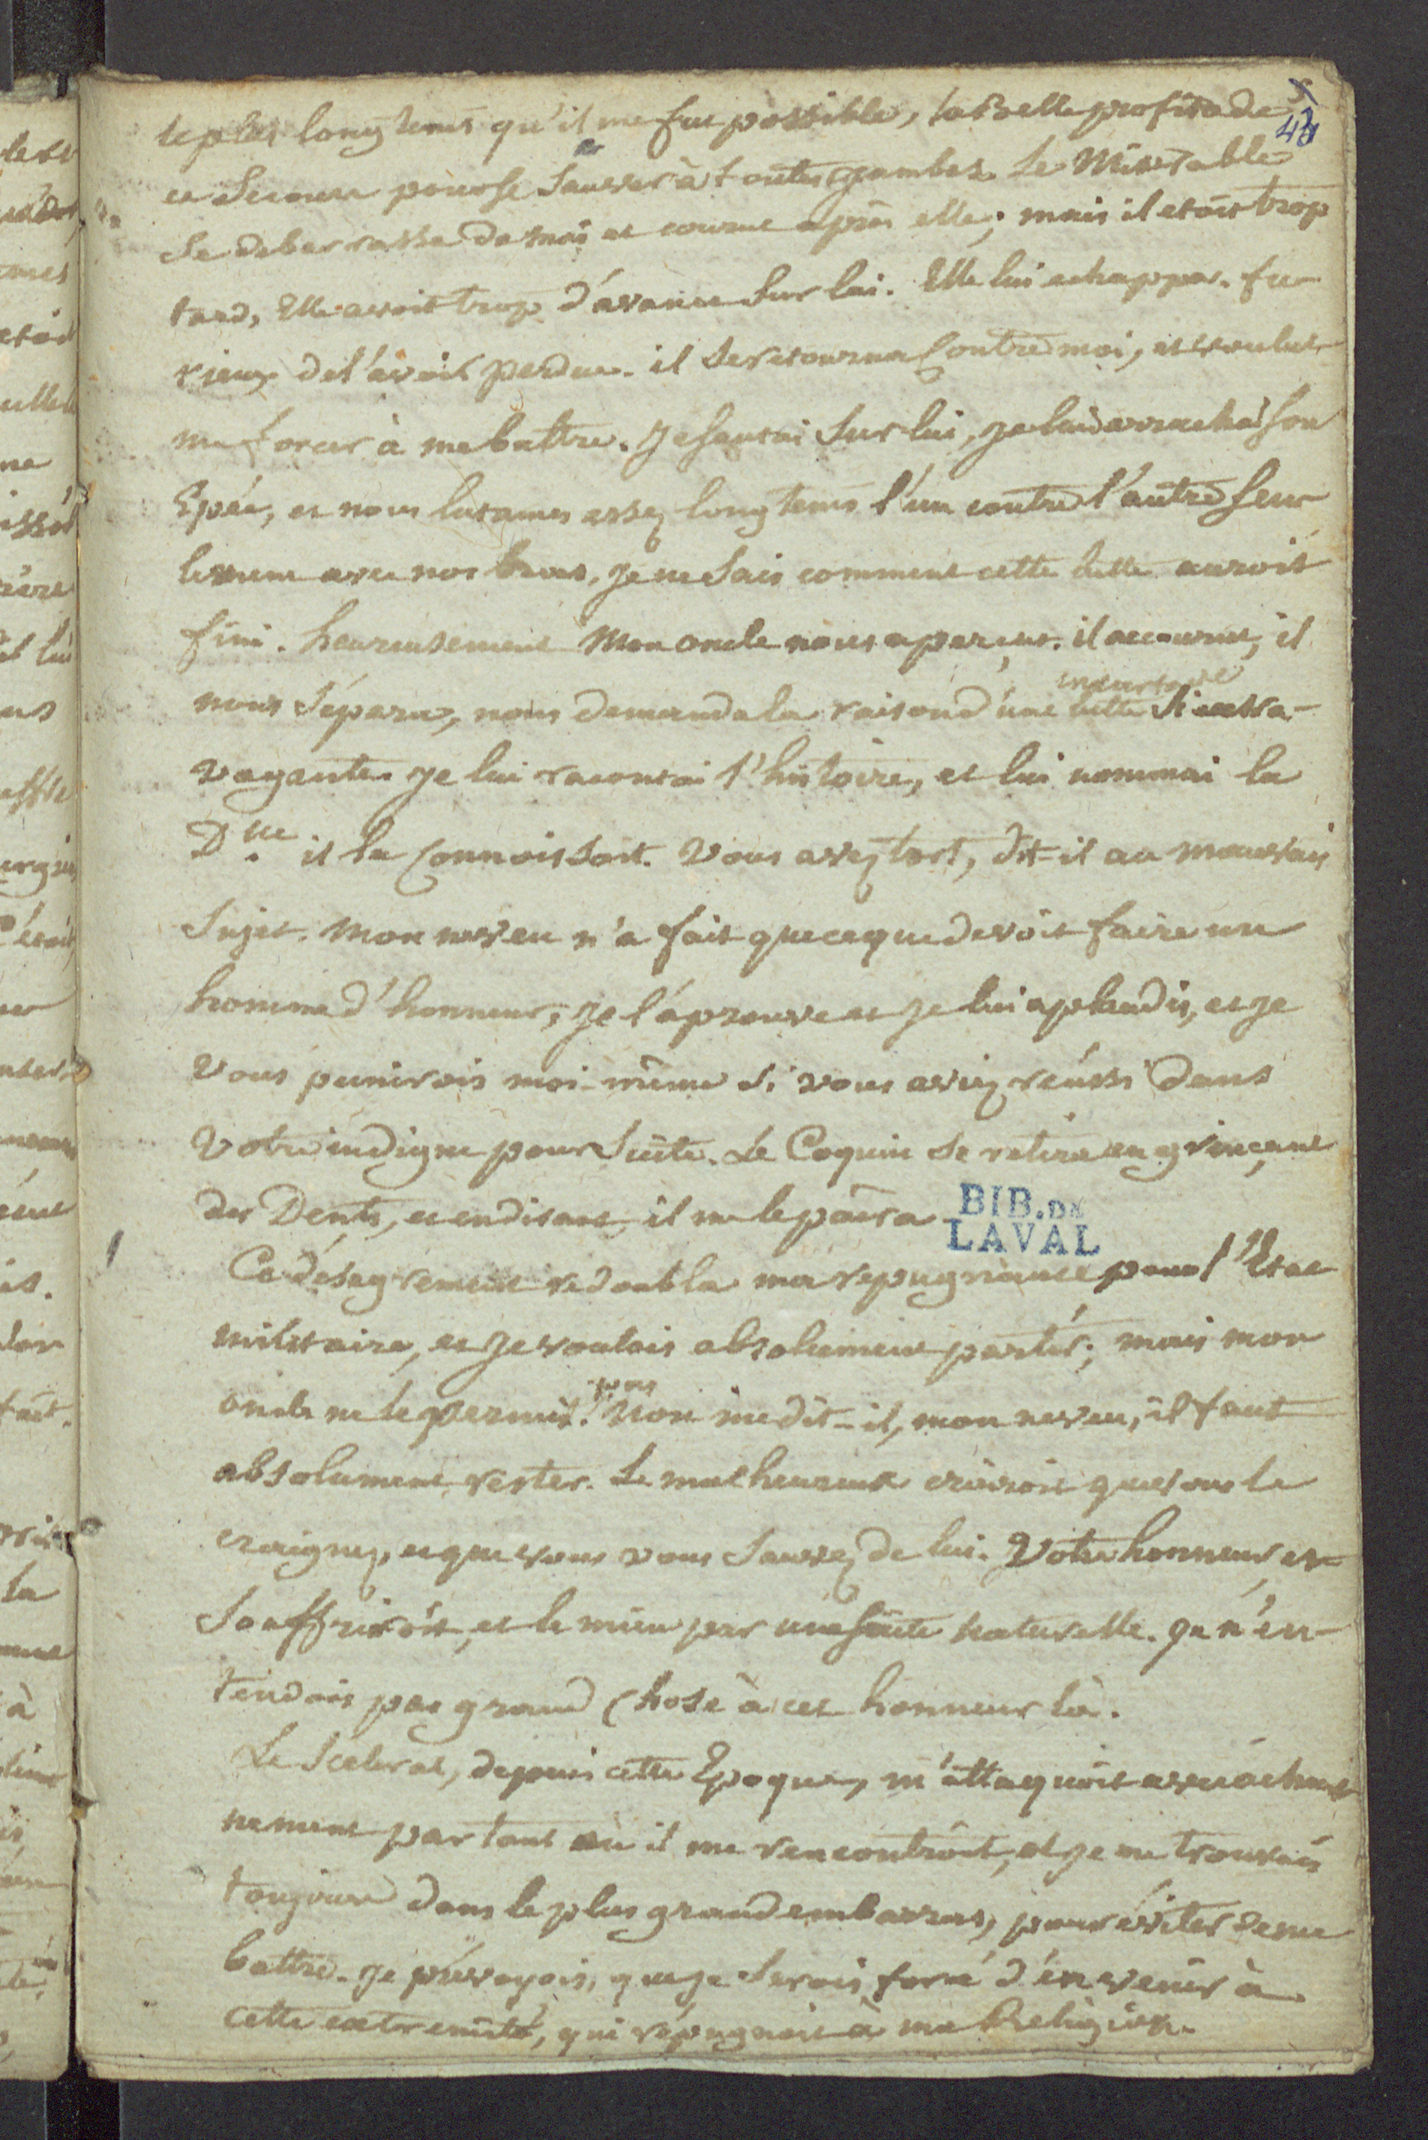 le plus longtems qu'il me fut possible, la Belle profita de
ce Secours pour se Sauver à toutes jambes. Le Miserable
Se debarrasse de moi et courut après elle; mais il etoit trop
tard, Elle avoit trop d'avance Sur lui. Elle lui echappa. fu-
rieux de l'avoir perdue. il Se retourna Contre moi, et voulut
me forcer à me battre. Je sautai Sur lui, je lui arrachai son
Epée, et nous lutames assez longtems l'un contre l'autre Seu-
lement avec nos bras, je ne Sais comment cette lutte auroit
fini. heureusement Mon oncle nous aperçut. il accourut, il
nous Sépara, nous demanda la raison d'une lutte Si extra-
vagante. Je lui racontai l'histoire, et lui nommai la
Dlle. il la Connoissoit. Vous avez tort, dit-il au mauvais
Sujet. mon neveu n'a fait que ce que devoit faire un
homme d'honneur, je l'aprouve et je lui aplaudis, et je
vous punirois moi-même Si vous aviez réussi dans
votre indigne pourSuite. Le Coquin Se retira en grinçant
des Dents, et en disant, il me le païra
BIB. DE
LAVAL
Ce désagrément redoubla ma repugnance pour l'Etat
militaire, et je voulois absolument partir; mais mon
oncle ne le permit pas. Non me dit-il, mon neveu, il faut
absolument rester. Le malheureux croiroit que vous le
craignez, et que vous vous Sauvez de lui. Votre honneur en
Souffriroit, et le mien par une suite naturelle. je n'en-
tendois pas grand Chose à cet honneur là.
Le Scelerat, depuis cette Epoque, m'attaquoit avec achar
nement partout où il me rencontroit, et je me trouvois
toujours dans le plus grand embarras, pour éviter de me
battre. Je prévoyois, que je Serois forcé d'en venir à
cette extremité, qui répugnoit à ma Religion.